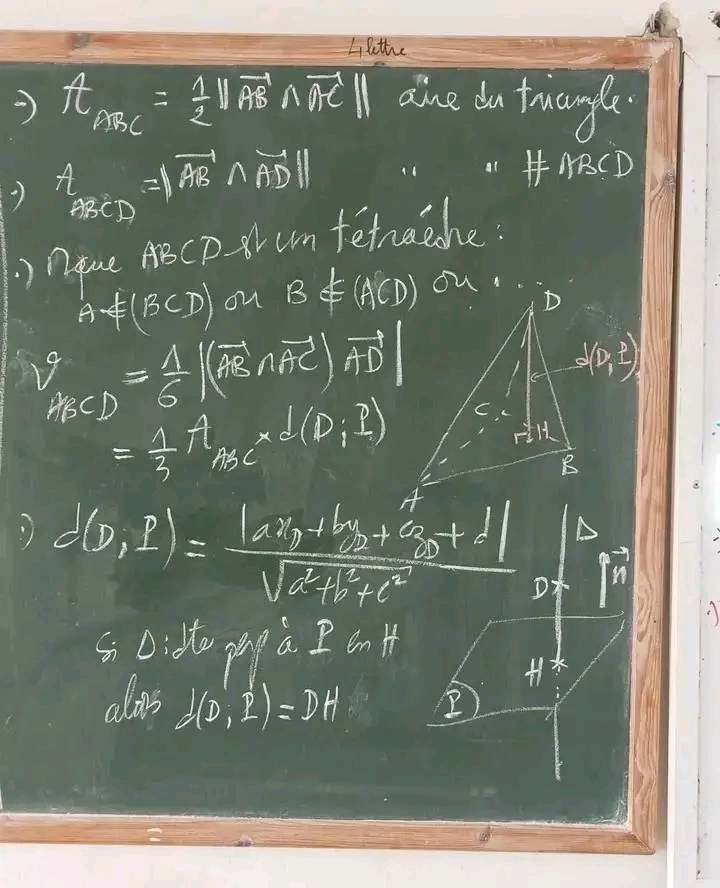 4 lettre
·) A_ABC = 1/2 ‖AB→ ∧ AC→‖ aire du triangle.
·) A_ABCD = ‖AB→ ∧ AD→‖ " " # ABCD
·) Mque ABCD est un tétraèdre :
A ∉ (BCD) ou B ∉ (ACD) ou ....
V_ABCD = 1/6 |(AB→ ∧ AC→) AD→|
= 1/3 A_ABC × d(D; P)
D
d(D; P)
C
H
B
A
·) d(D; P) = |ax_D + by_D + cz_D + d| / √(a² + b² + c²)
Si Δ : dte perp à P en H
alors d(D; P) = DH
Δ
n→
D
H
P